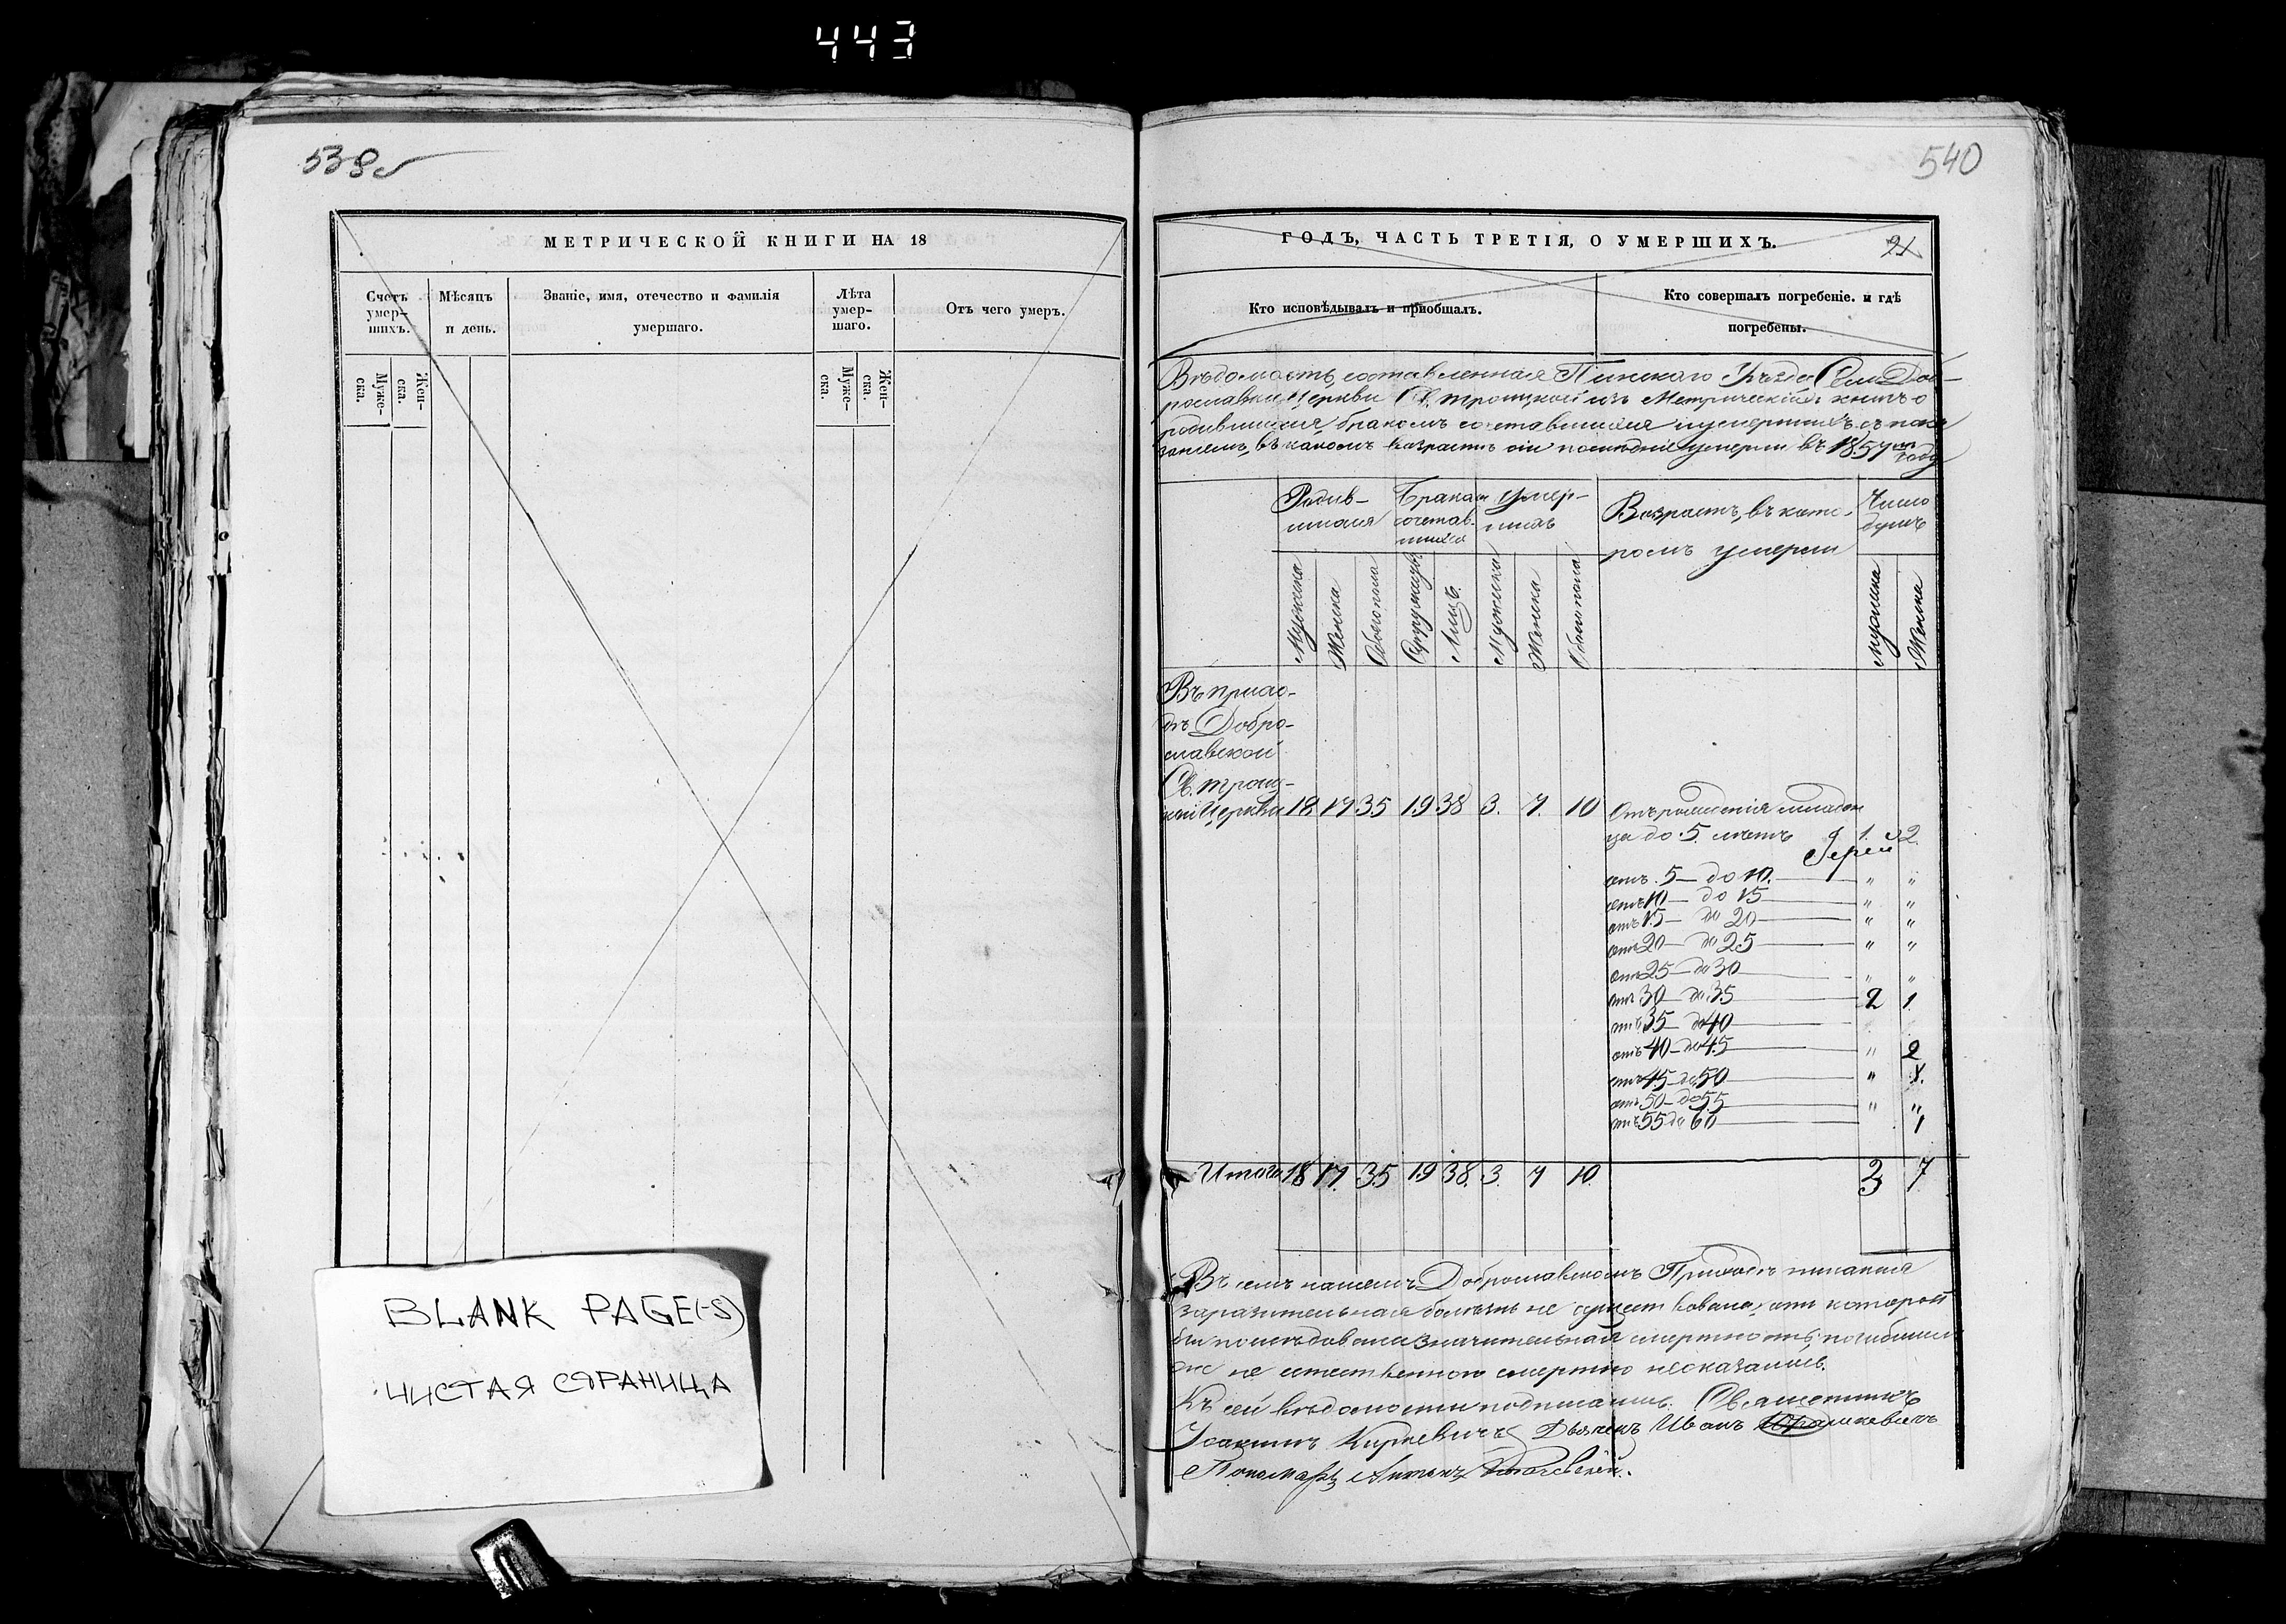 443
539об
540
МЕТРИЧЕСКОЙ КНИГИ НА 18
Счетъ умер-шихъ.
Муже-ска.
Жен-ска.
Мѣсяцъ и день.
Званіе, имя, отечество и фамилія умершаго.
Лѣта умер-шаго.
Муже-ска.
Жен-ска.
Отъ чего умеръ.
BLANK PAGE(-S)
ЧИСТАЯ СТРАНИЦА
ГОДЪ, ЧАСТЬ ТРЕТІЯ, О УМЕРШИХЪ.
21
Кто исповѣдывалъ и пріобщалъ.
Кто совершалъ погребеніе. и гдѣ погребены.
Вѣдомость, составленная Пинскаго Уѣзда Села Доб-
рославки Церкви Св. троицкой изъ Метрическихъ книгъ о
родившихся, бракомъ сочетавшихся и умершихъ съ пока
заніемъ, въ какомъ возрастѣ сіи послѣдніе умерли въ 1857мъ году
Родив-
шихся
Бракомъ
сочетав-
шихся
Умер-
шихъ
Возрастъ, въ кото-
ромъ умерли
Число
душъ
Мужеска
Женска
Обоего пола
Супружествъ
Лицъ.
Мужеска
Женска
Обоего пола
Мужеска
Женска
Въ прихо-
дѣ Добро-
славской
Св. троиц-
кой Церкви 18 17 35 19 38 3. 7. 10 Отъ рожденія младен
ца до 5. лѣтъ 1. 2.
Іерей
отъ 5 — до 10. — " "
отъ 10 — до 15 — " "
отъ 15 — до 20 — " "
отъ 20 — до 25 — " "
отъ 25 — до 30 — " "
отъ 30 — до 35 — 2 1
отъ 35 — до 40 —
отъ 40 — до 45 — " 2
отъ 45 — до 50 — " 1.
отъ 50 — до 55 — " "
отъ 55 до 60 — 1
Итого 18 17. 35 19 38. 3. 7 10. 3 7
Въ семъ нашемъ Доброславскомъ Приходѣ никакая
заразительная болѣзнь не существовала, отъ которой
бы послѣдовала значительная смертность; погибшихъ
же не естественною смертію не оказалось.
Къ сей вѣдомости подписались: Священникъ
Іоакимъ Киркевичъ Дьячекъ Иванъ
Пономарь Антонъ